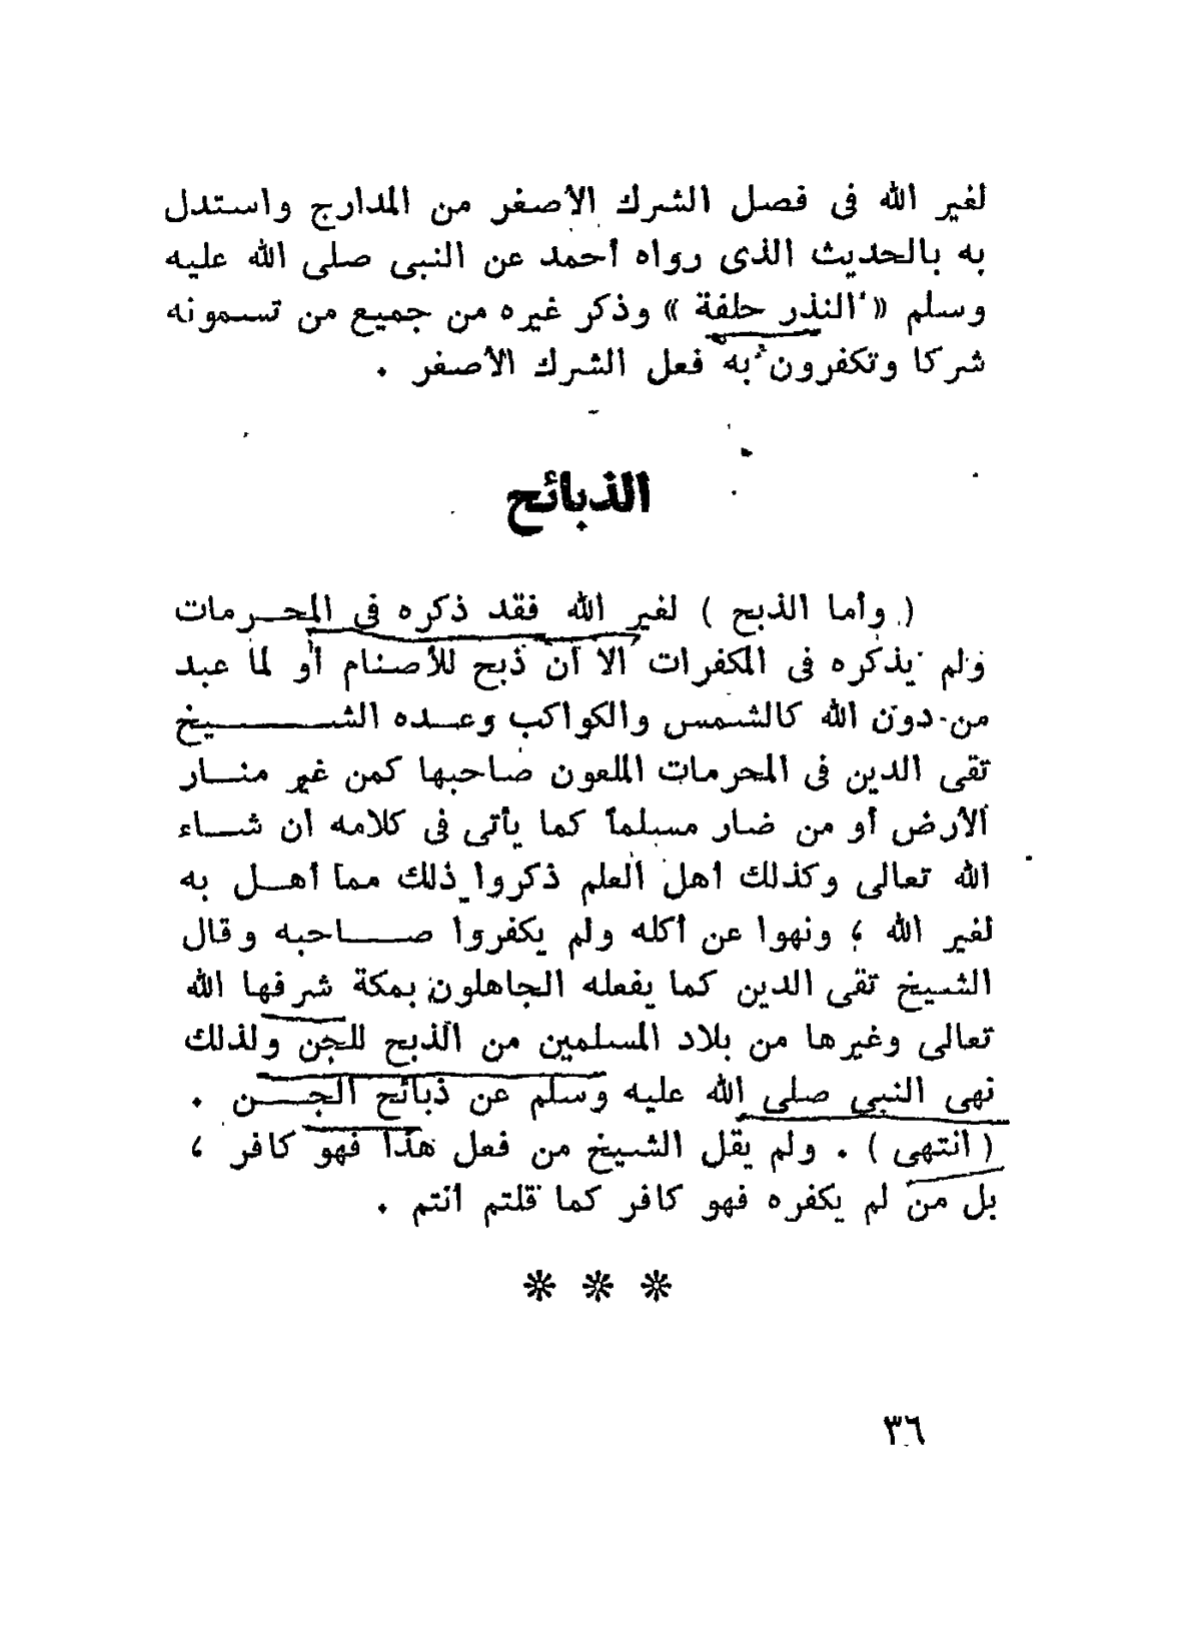 لغير الله فى فصل الشرك الأصغر من المدارج واستدل
به بالحديث الذى رواه أحمد عن النبى صلى الله عليه
وسلم « النذر حلفة » وذكر غيره من جميع من تسمونه
شركا وتكفرون به فعل الشرك الأصغر .
الذبائح
( وأما الذبح ) لغير الله فقد ذكره فى المحرمات
ولم يذكره فى المكفرات الا أن ذبح للأصنام أو لما عبد
من دون الله كالشمس والكواكب وعده الشيخ
تقى الدين فى المحرمات الملعون صاحبها كمن غير منار
الأرض أو من ضار مسلماً كما يأتى فى كلامه ان شاء
الله تعالى وكذلك أهل العلم ذكروا ذلك مما أهل به
لغير الله ؛ ونهوا عن أكله ولم يكفروا صاحبه وقال
الشيخ تقى الدين كما يفعله الجاهلون بمكة شرفها الله
تعالى وغيرها من بلاد المسلمين من الذبح للجن ولذلك
نهى النبى صلى الله عليه وسلم عن ذبائح الجن .
( انتهى ) . ولم يقل الشيخ من فعل هذا فهو كافر ،
بل من لم يكفره فهو كافر كما قلتم أنتم .
* * *
٣٦